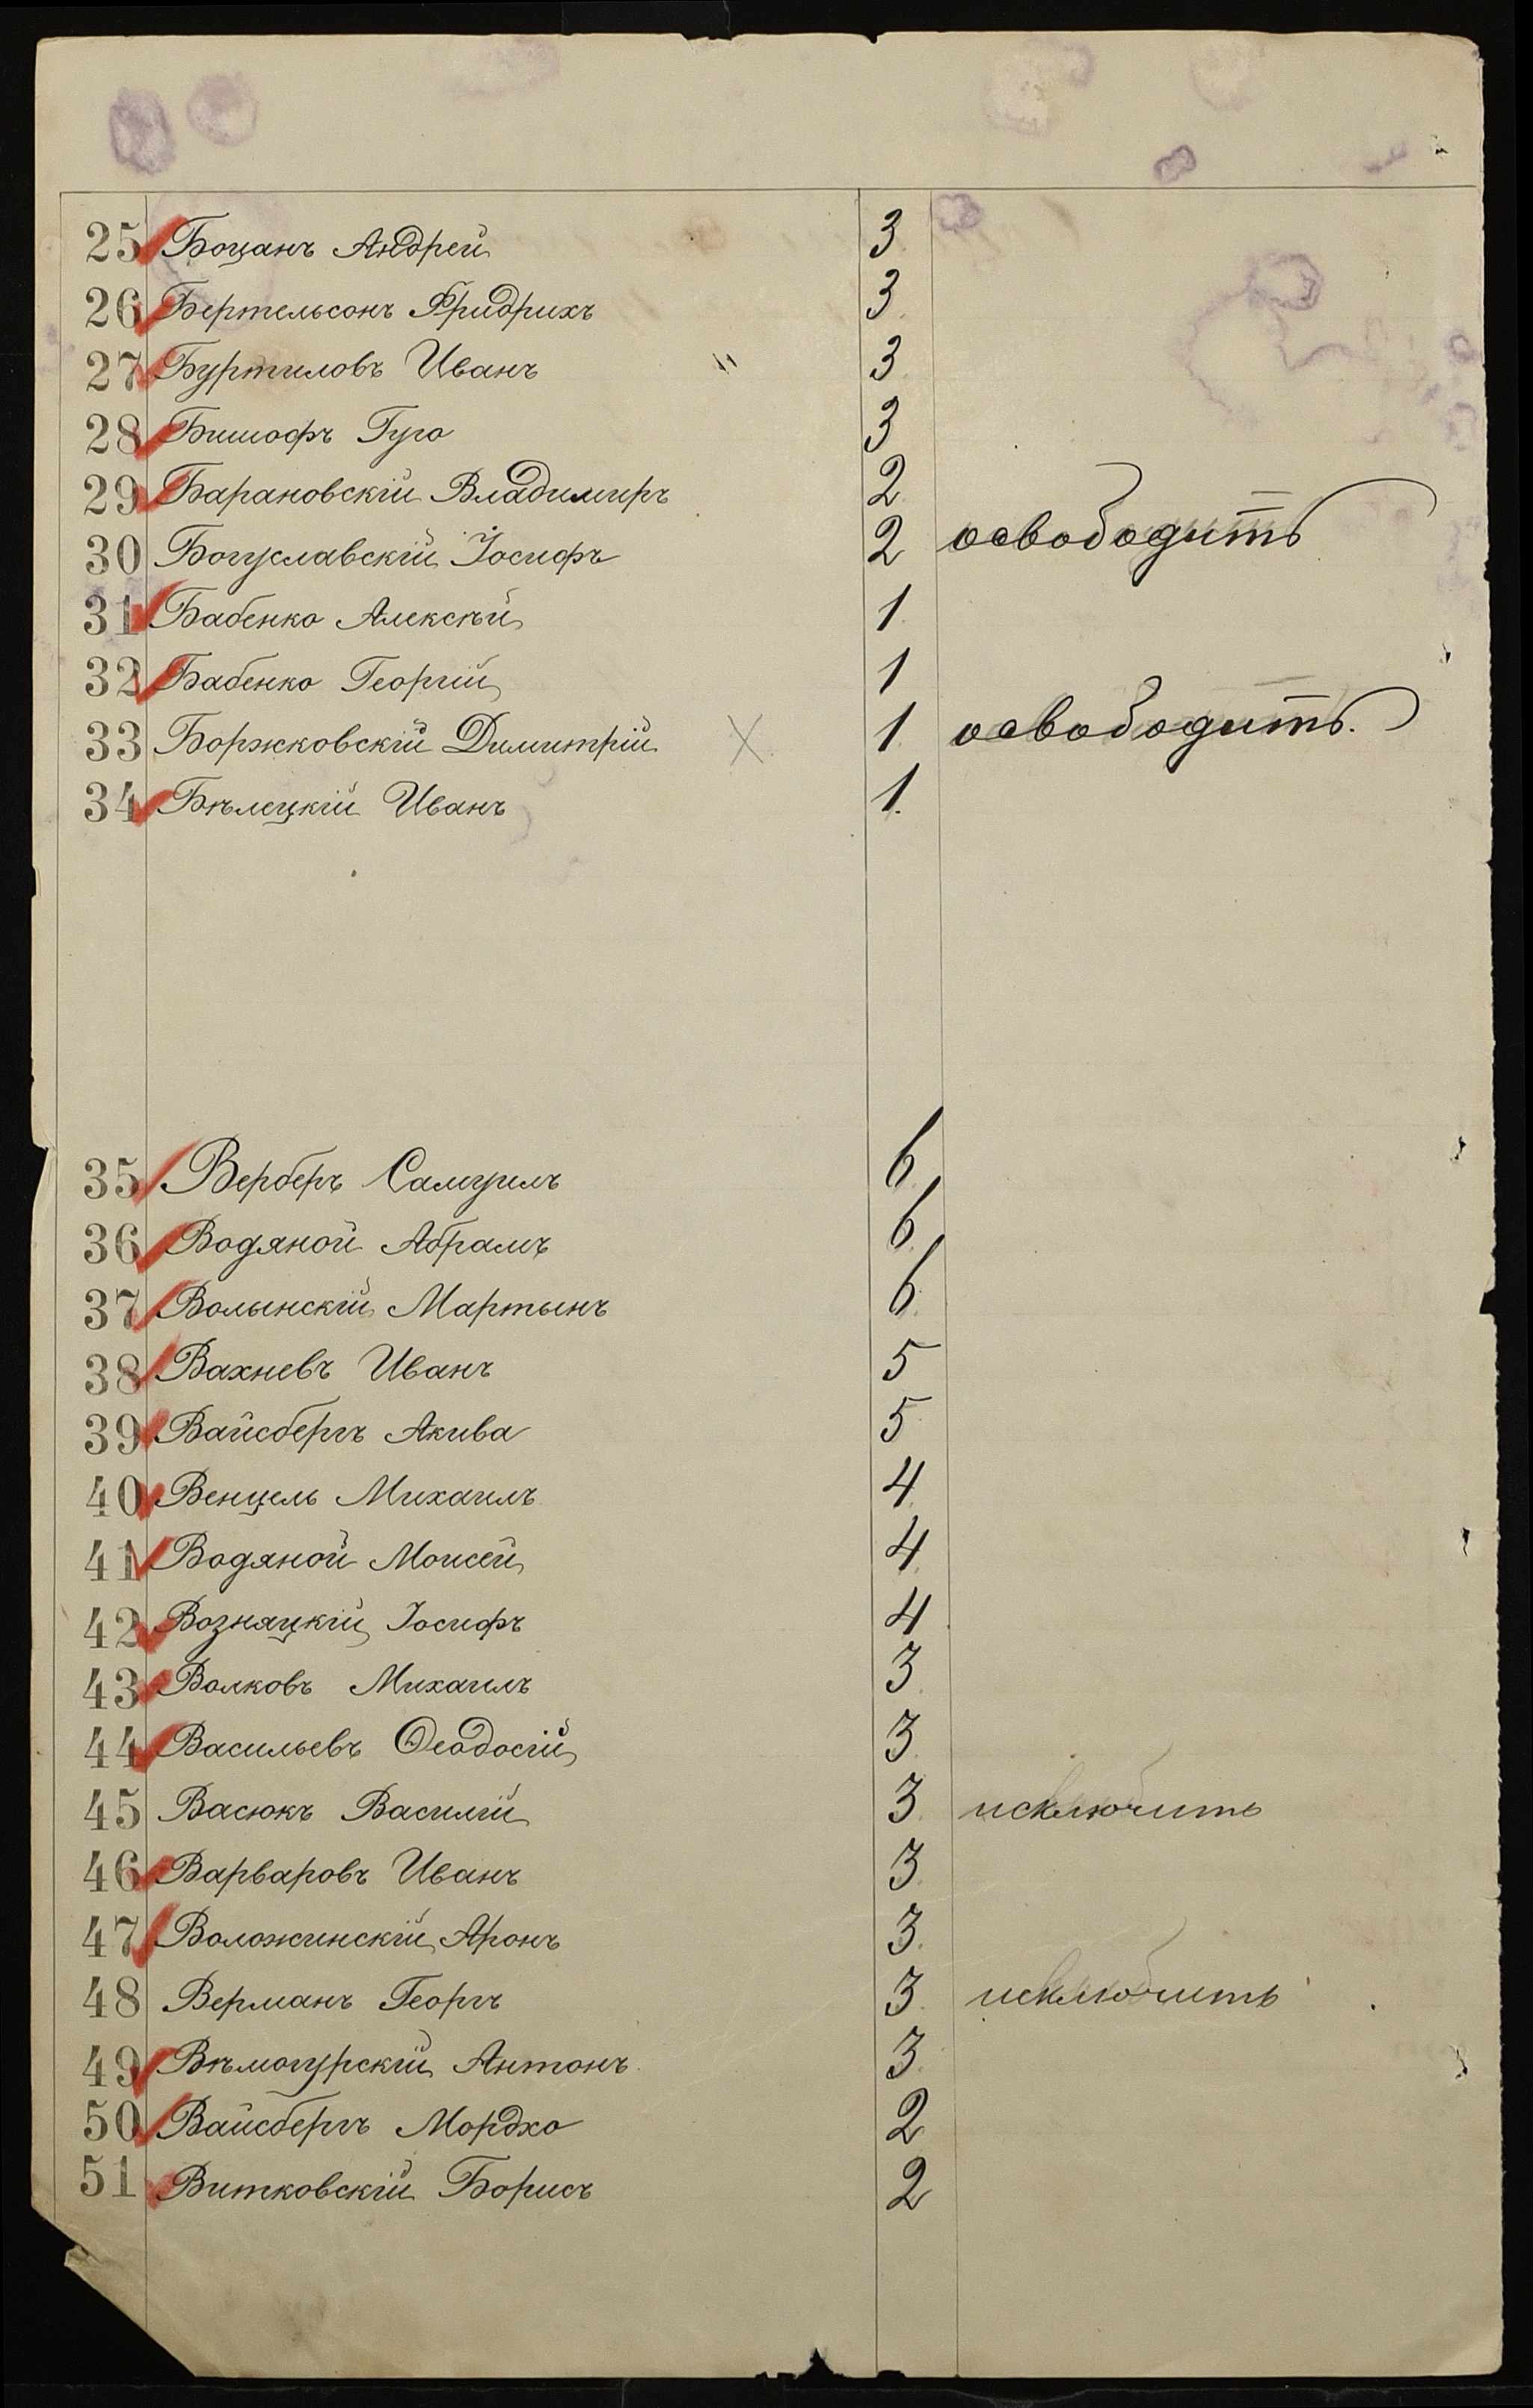 25 Боцанъ Андрей 3.
26 Бертельсонъ Фридрихъ 3.
27 Буртиловъ Иванъ " 3.
28 Бишофъ Гуго 3
29 Барановскій Владимиръ 2.
30 Богуславскій Іосифъ 2 освободить
31 Бабенко Алексѣй 1.
32 Бабенко Георгій 1
33 Боржковскій Димитрій X 1. освободить.
34 Бѣлецкій Иванъ 1.
35 Верберъ Самуилъ 6.
36 Водяной Абрамъ 6.
37 Волынскій Мартынъ 6.
38 Вахневъ Иванъ 5
39 Вайсбергъ Акива 5
40 Венцель Михаилъ 4.
41 Водяной Моисей 4.
42 Возняцкій Іосифъ 4
43 Волковъ Михаилъ 3.
44 Васильевъ Ѳеодосій 3.
45 Васюкъ Василій 3. исключить
46 Варваровъ Иванъ 3.
47 Воложинскій Аронъ 3.
48 Верманъ Георгъ 3. исключить
49 Вѣмогурскій Антонъ 3.
50 Вайсбергъ Мордко 2
51 Витковскій Борисъ 2